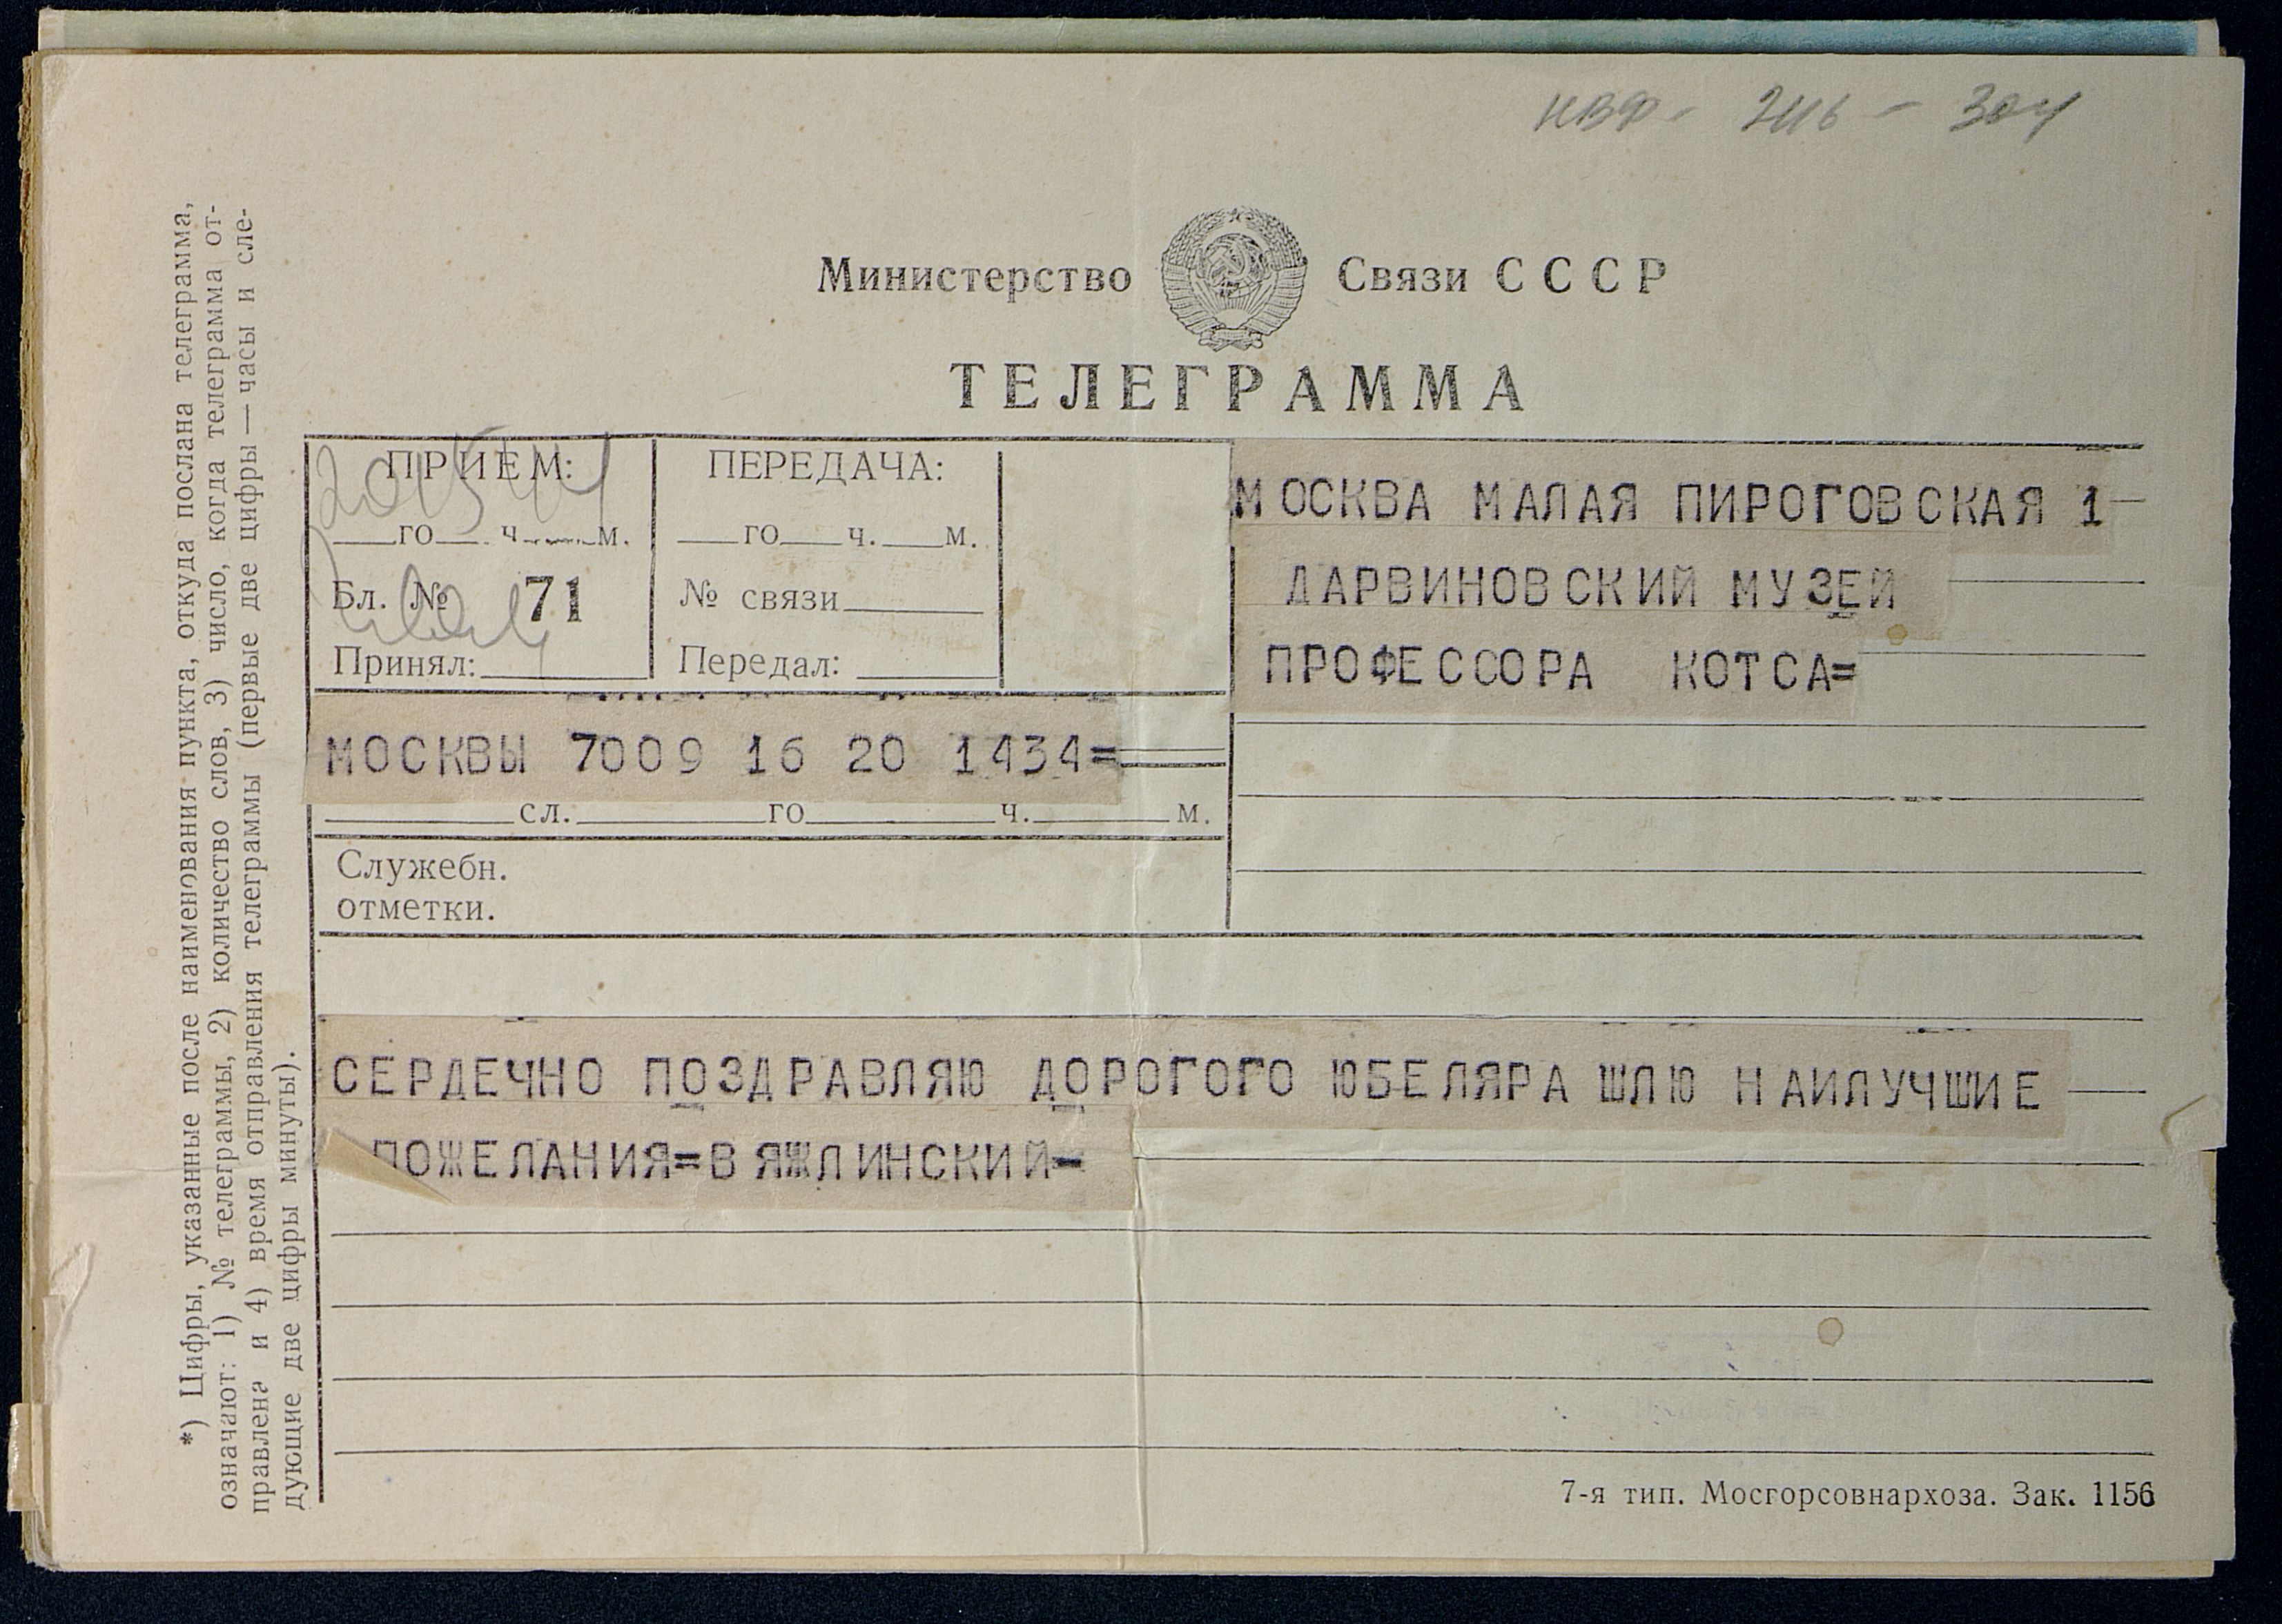 КВФ - 2116 - 304
Министерство Связи СССР
ТЕЛЕГРАММА
ПРИЕМ:
го ч. м.
Бл. № 71
Принял:
ПЕРЕДАЧА:
го ч. м.
№ связи
Передал:
МОСКВА МАЛАЯ ПИРОГОВСКАЯ 1
ДАРВИНОВСКИЙ МУЗЕЙ
ПРОФЕССОРА КОТСА=
МОСКВЫ 7009 16 20 1434=
сл. го ч. м.
Служебн.
отметки.
СЕРДЕЧНО ПОЗДРАВЛЯЮ ДОРОГОГО ЮБЕЛЯРА ШЛЮ НАИЛУЧШИЕ
ПОЖЕЛАНИЯ=ВЯЖЛИНСКИЙ-
*) Цифры, указанные после наименования пункта, откуда послана телеграмма,
означают: 1) № телеграммы, 2) количество слов, 3) число, когда телеграмма от-
правлена и 4) время отправления телеграммы (первые две цифры — часы и сле-
дующие две цифры минуты).
7-я тип. Мосгорсовнархоза. Зак. 1156